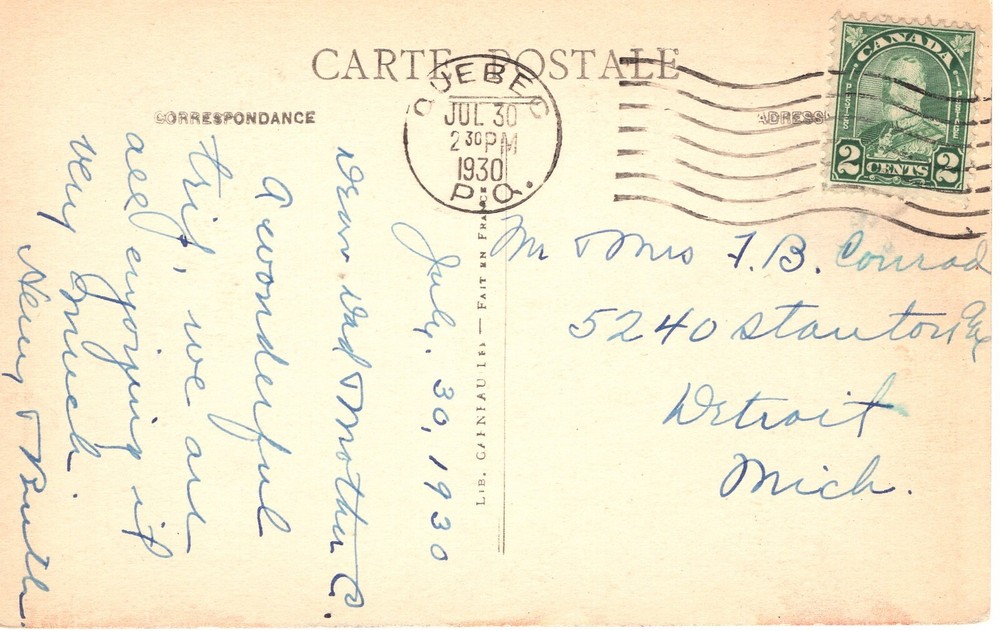 CARTE POSTALE
CORRESPONDANCE
ADRESSE
QUEBEC
JUL 30
2 30 PM
1930
P.Q.
CANADA
POSTES
POSTAGE
2 CENTS 2
LIB. GARNEAU — FAIT EN FRANCE
July. 30, 1930
Dear Dad & Mother C.
A wonderful
trip, we are
all enjoying it
very much.
Henry & Ruth.
Mr & Mrs F. B. Conrad
5240 Stanton Ave
Detroit
Mich.